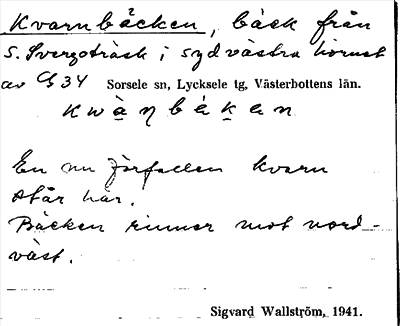 Kvarnbäcken, bäck från
S. Svergoträsk i sydvästra hörnet
av G 34 Sorsele sn, Lycksele tg, Västerbottens län.
En nu förfallen kvarn
står här.
Bäcken rinner mot nord-
väst.
Sigvard Wallström, 1941.